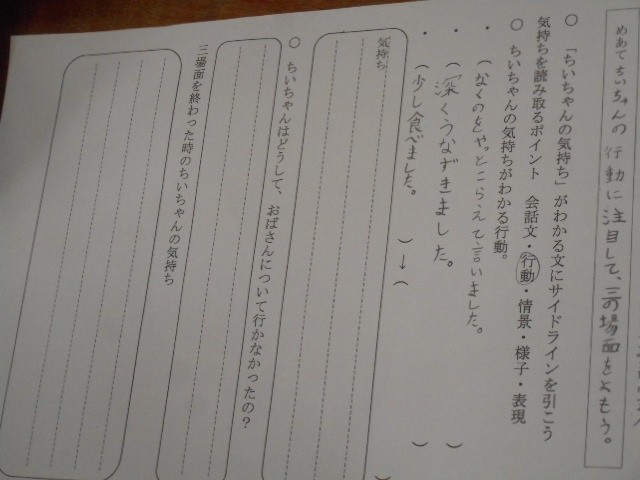 めあて ちいちゃんの行動に注目して、三の場面をよもう。
○ 「ちいちゃんの気持ち」がわかる文にサイドラインを引こう
気持ちを読み取るポイント 会話文・行動・情景・様子・表現
○ ちいちゃんの気持ちがわかる行動。
・(なくのをやっとこらえて言いました。
・(深くうなずきました。 )
・(少し食べました。 )→( )
気持ち
○ ちいちゃんはどうして、おばさんについて行かなかったの?
三場面を終わった時のちいちゃんの気持ち